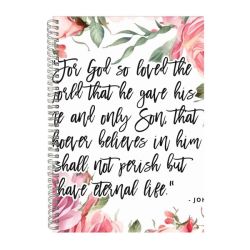 "For God so loved the
orld that he gave his
e and only Son, that
oever believes in him
shall not perish but
have eternal life."
- JOH